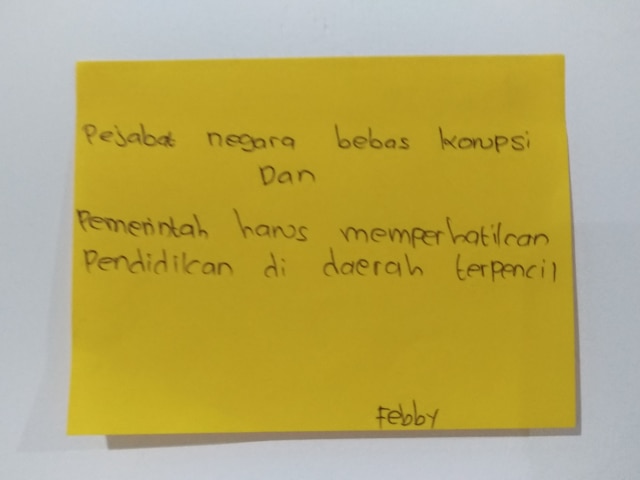 Pejabat negara bebas korupsi
Dan
Pemerintah harus memperhatikan
Pendidikan di daerah terpencil
Febby